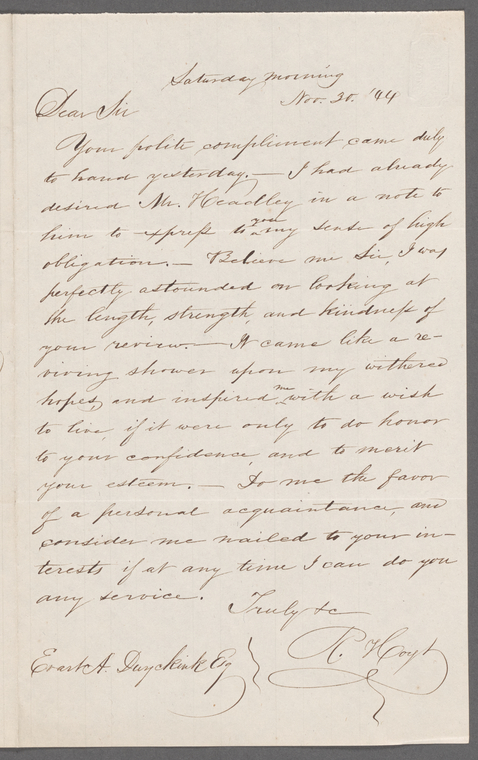 Saturday morning
Nov. 30. '44
Dear Sir
Your polite compliment came duly
to hand yesterday. — I had already
desired Mr. Headley in a note to
him to express to you my sense of high
obligation. — Believe me Sir, I was
perfectly astounded on looking at
the length, strength, and kindness of
your review. — It came like a re-
viving shower upon my withered
hopes, and inspired me with a wish
to live, if it were only to do honor
to your confidence, and to merit
your esteem. — Do me the favor
of a personal acquaintance, and
consider me nailed to your in-
terests if at any time I can do you
any service.
Truly &c
R. Hoyt
Evart A. Duyckink Esq